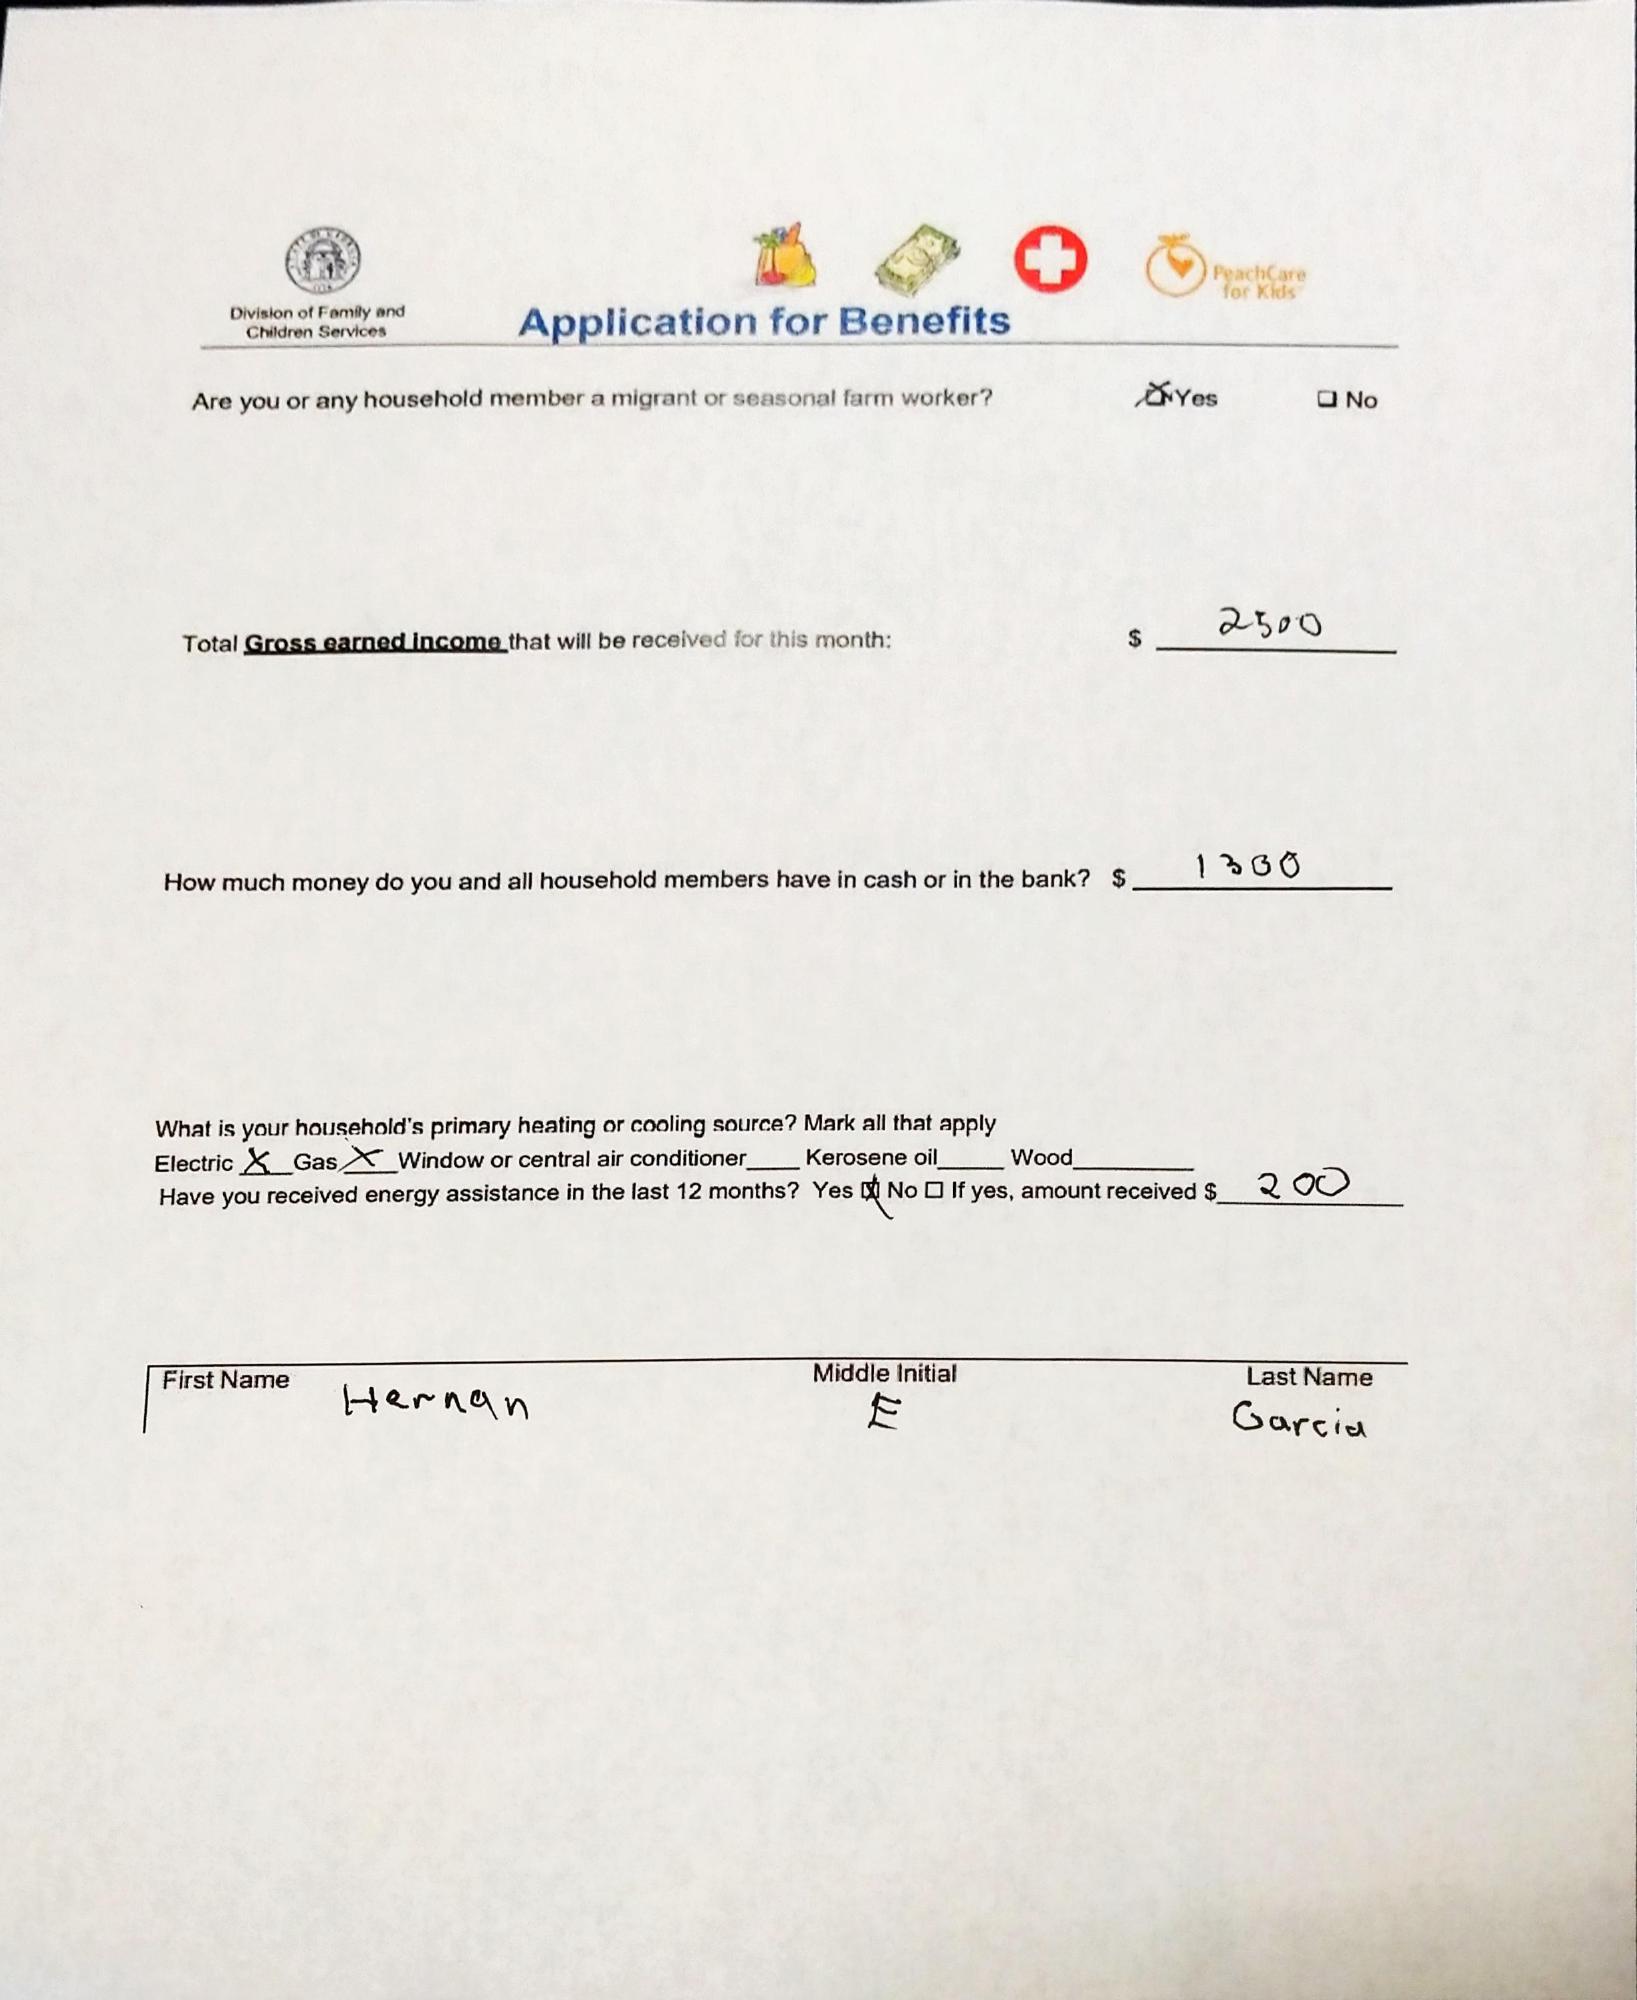 PeachCare
for Kids
Division of Family and
Children Services
Application for Benefits
Are you or any household member a migrant or seasonal farm worker? ☒ Yes ☐ No
Total Gross earned income that will be received for this month: $ 2500
How much money do you and all household members have in cash or in the bank? $ 1300
What is your household's primary heating or cooling source? Mark all that apply
Electric X Gas X Window or central air conditioner____ Kerosene oil____ Wood____
Have you received energy assistance in the last 12 months? Yes ☒ No ☐ If yes, amount received $ 200
First Name Middle Initial Last Name
Hernan E Garcia